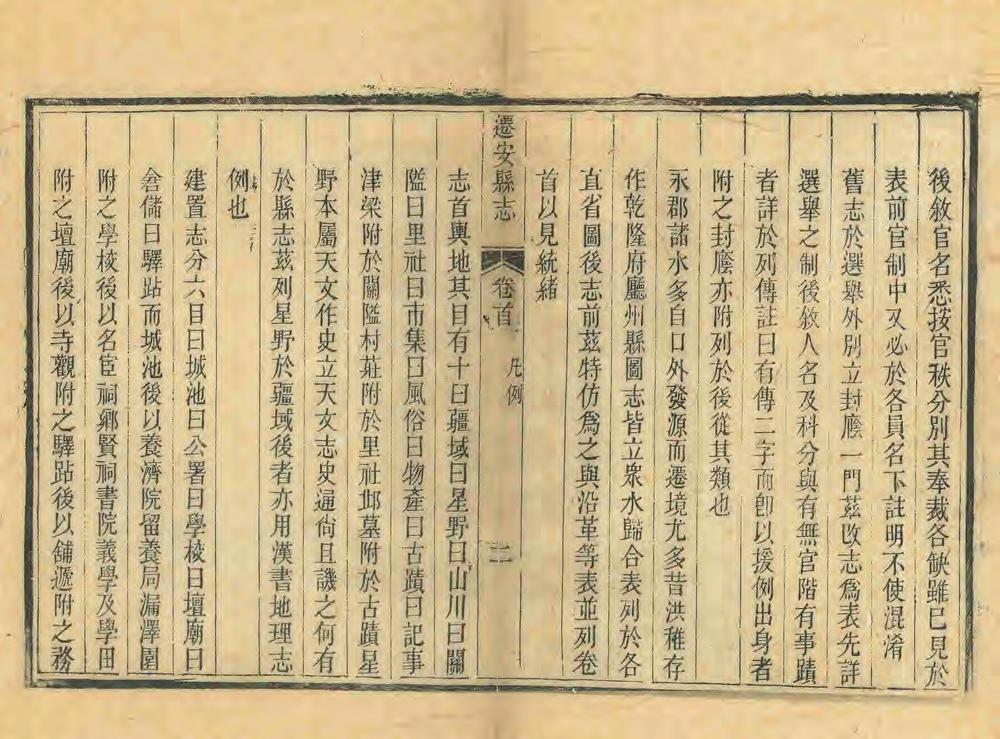 後敘官名悉按官秩分別其奉裁各缺雖已見於
表前官制中又必於各員名下註明不使混淆
舊志於選舉外別立封廕一門茲改志爲表先詳
選舉之制後敘人名及科分與有無官階有事蹟
者詳於列傳註曰有傳二字而卽以援例出身者
附之封廕亦附列於後從其類也
永郡諸水多自口外發源而遷境尤多昔洪稚存
作乾隆府廳州縣圖志皆立衆水歸合表列於各
直省圖後志前茲特仿爲之與沿革等表並列卷
首以見統緒
遷安縣志 卷首 凡例 二
志首輿地其目有十曰疆域曰星野曰山川曰關
隘曰里社曰市集曰風俗曰物產曰古蹟曰記事
津梁附於關隘村莊附於里社邱墓附於古蹟星
野本屬天文作史立天文志史通尙且譏之何有
於縣志茲列星野於疆域後者亦用漢書地理志
例也
建置志分六目曰城池曰公署曰學校曰壇廟曰
倉儲曰驛跕而城池後以養濟院留養局漏澤園
附之學校後以名宦祠鄉賢祠書院義學及學田
附之壇廟後以寺觀附之驛跕後以舖遞附之務